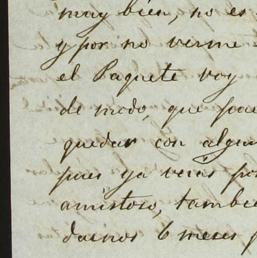 muy bien, no es
y por no verme
el Paquete voy
de modo, que
quedar con algun
pues ya veras por
amistoso, tambie
darnos 6 meses